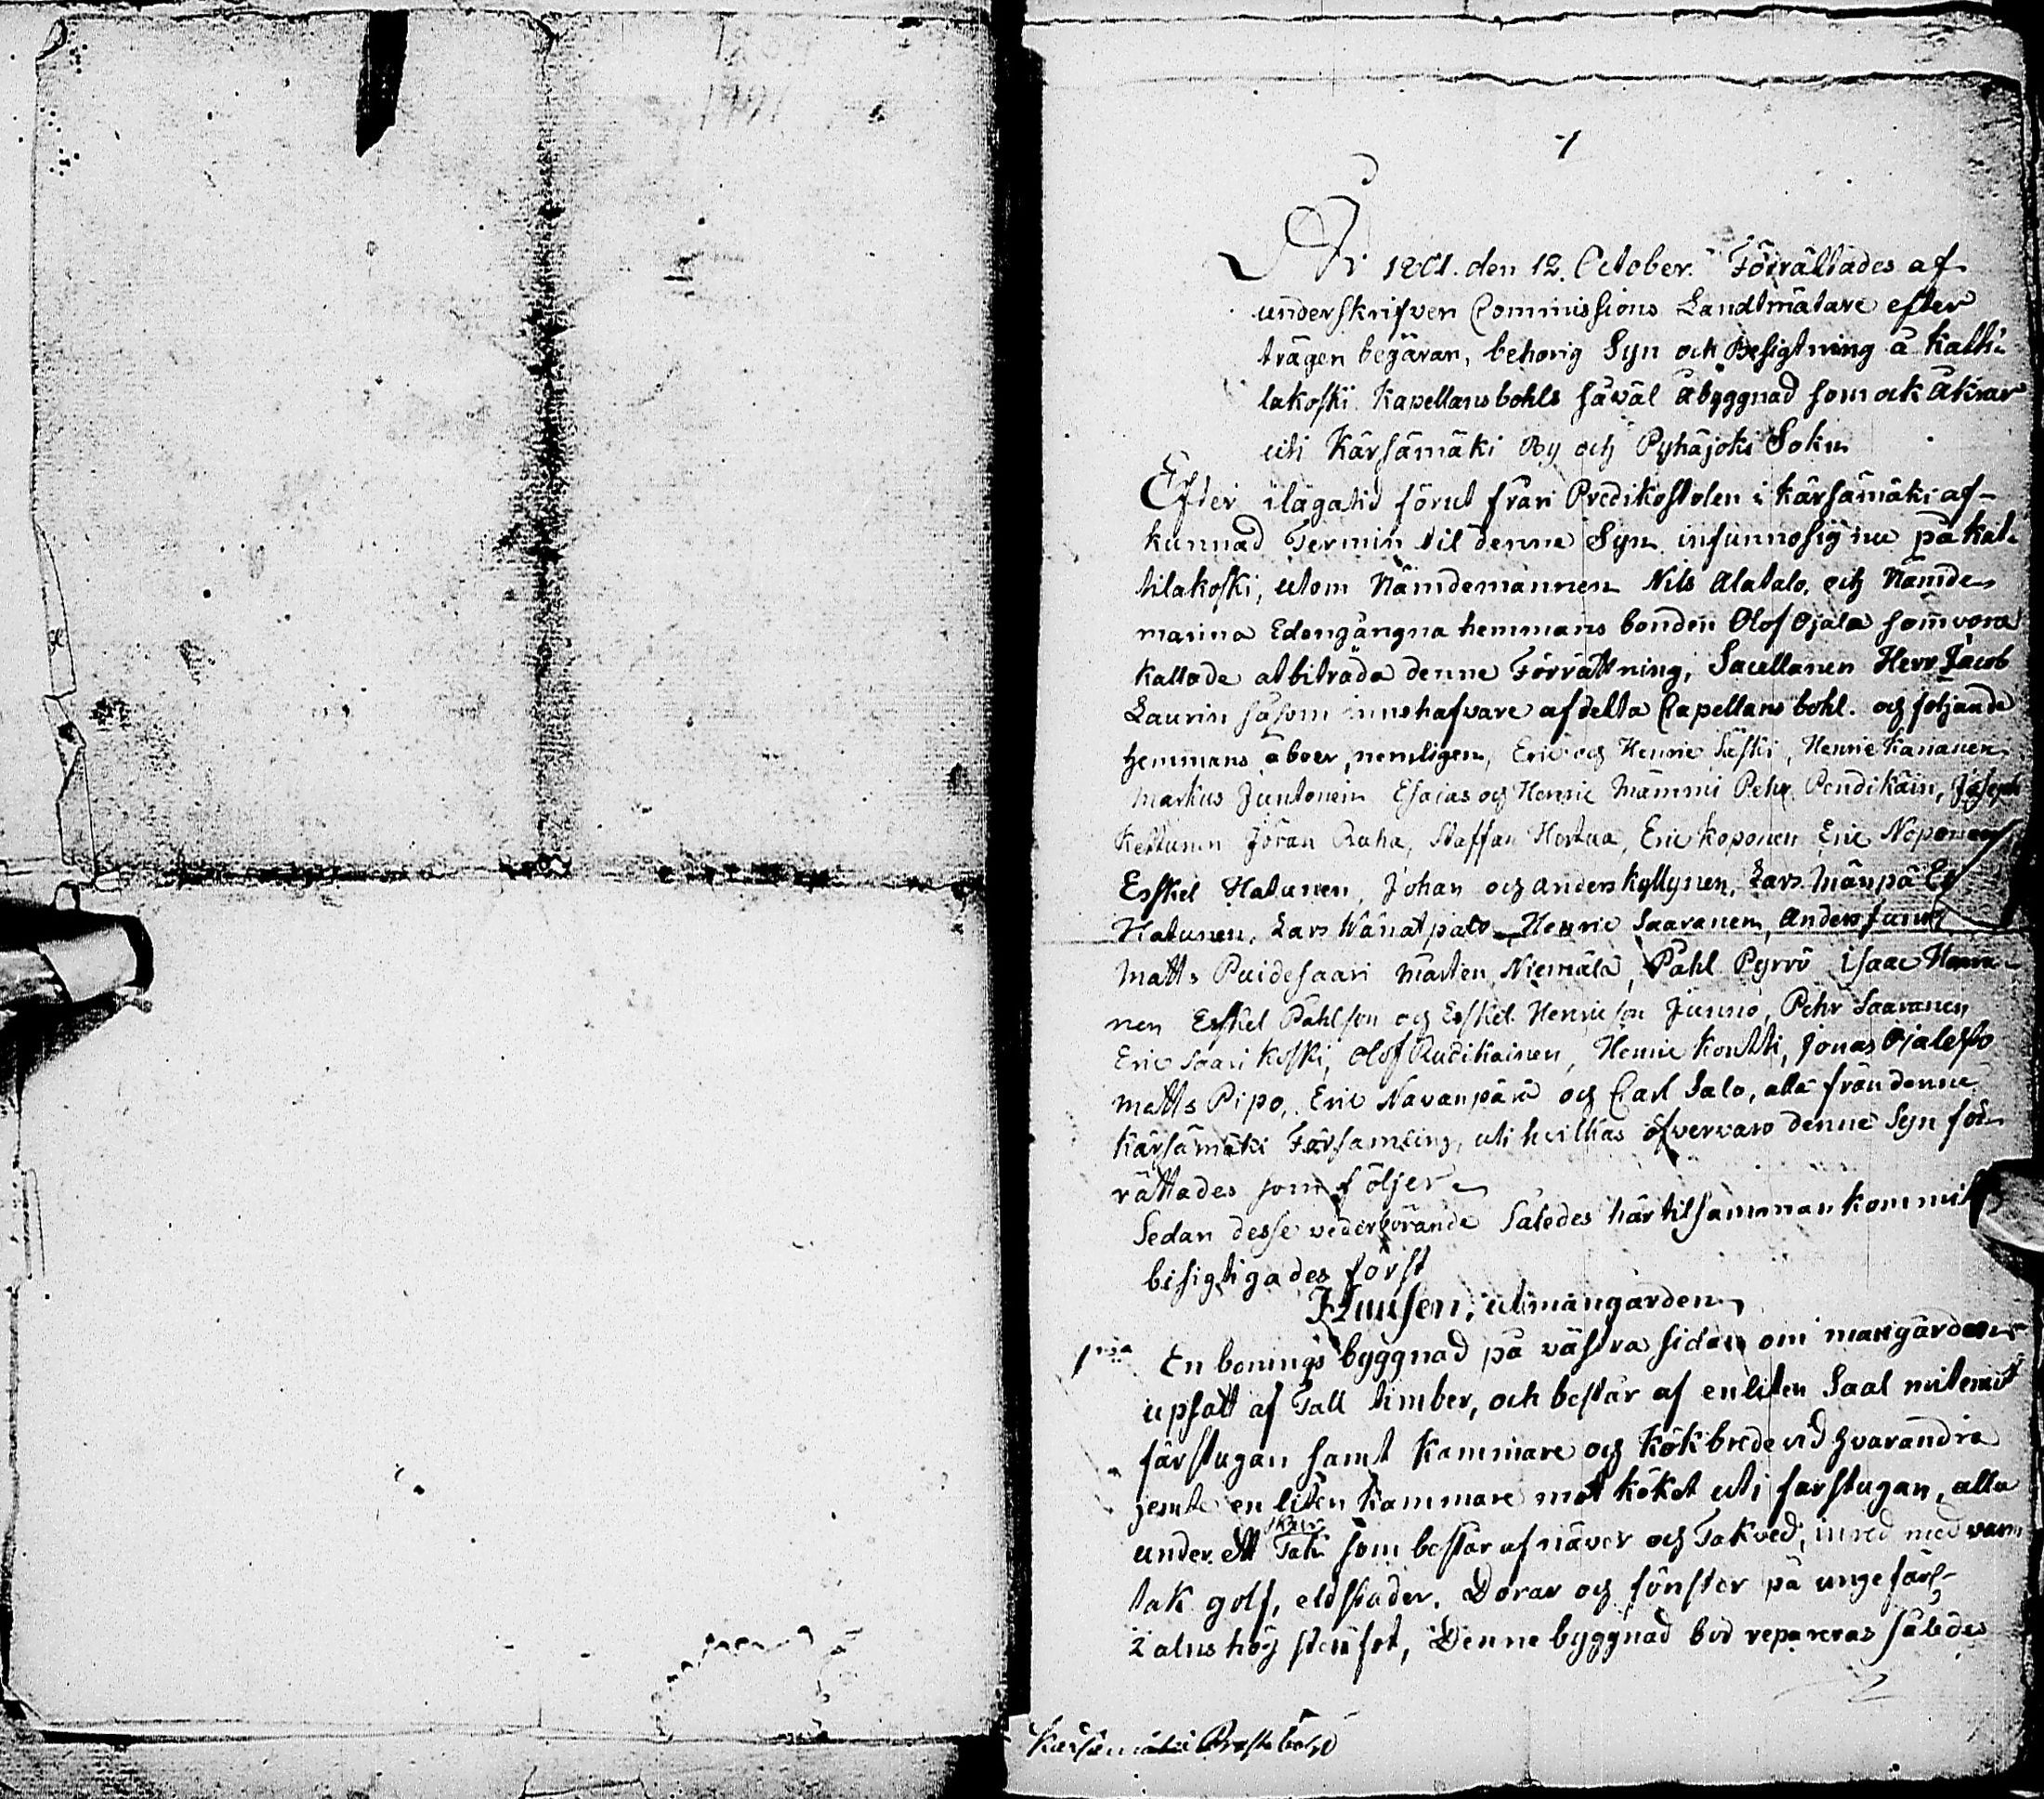 1
År 1801. den 12. October. Förrättades af
underskrifven Commissions Landtmätare efter
trägen begäran, behörig Syn och Besigtning å Katti-
lakoski Kapellansbohls såväl åbyggnad som ock Åkrar
uti Kärsämäki By och Pyhäjoki Sokn
Efter ilaga tid förut från Predikostolen i Kärsämäki af-
kunnad Termin til denne Syn infunno sig nu på Kat-
tilakoski, utom Nämdemannen Nils Alatalo, och Nämde-
manna Edengångna hemmans bonden Olof Ojala som voro
kallade at biträda denne Förrättning, Sacellanen Herr Jacob
Laurin såsom innehafvare af detta Capellans bohl. och följande
hemmans åboer, nemligen, Eric och Henric Säski, Henric Kananen
Markus Juntonen Esaias och Henric Mämmi Pehr Pendikäin, Joseph
Kestunen Jöran Ruha, Staffan Hertua, Eric Koponen Eric Noponen
Eskel Hatunen, Johan och Anders Kyllynen, Lars Mänpä
Hatunen, Lars Henric Saaranen, Anders
Matts Puidesaari Mårten Niemälä, Påhl Pyrrö Isaac
nen Eskel Påhlson och Eskel Henricson Junno, Pehr Saaranen
Eric Saarikoski, Olof Henric Kontti, Jonas Ojalehto
Matts Pipo, Eric Navanpärä och Carl Salo, alla från denne
Kärsämäki Församling, uti hvilkas öfvervaro denne Syn för-
rättades som följer
Sedan desse vederbörande således här tilsamman kommit
besigtigades först
Huusen, uti mangården
1mo En bonings byggnad på västra sidan om mangården
upsatt af Tall timber, och består af en liten Saal mitemot
farstugan samt Kammare och Kök brede vid hvarandra
jemte en liten Kammare mot köket uti farstugan, alla
under ett Tak som består af näver och Takved, inred med varm
tak golf, eldstäder, Dörar och fönster på ungefär
2 alns hög stenfot, Denne byggnad bör repareras således
Kärsämäki Prestebohl